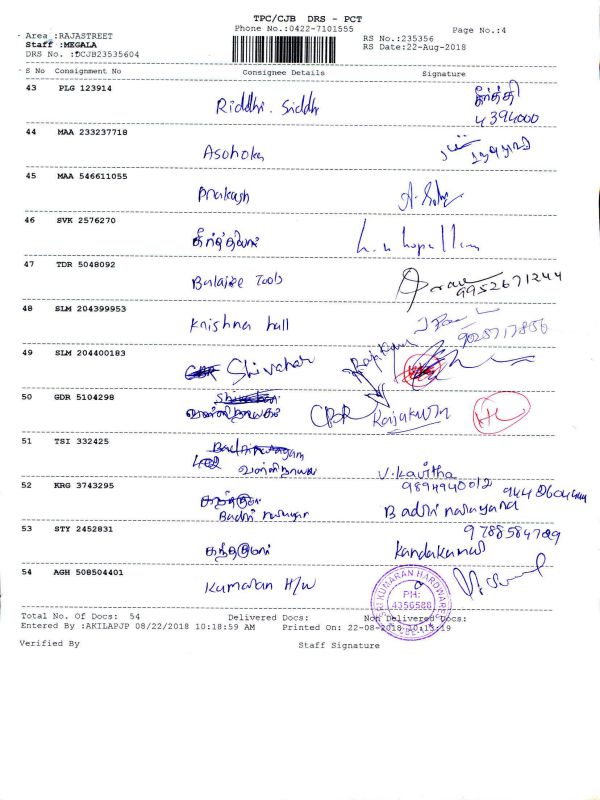 TPC/CJB DRS - PCT
Phone No.:0422-7101555
Page No.:4
Area :RAJASTREET
RS No.:235356
Staff :MEGALA
RS Date:22-Aug-2018
DRS No. :DCJB23535604
S No Consignment No Consignee Details Signature
43 PLG 123914
Riddhi. Siddhi
4394000
44 MAA 233237718
Asohoka
45 MAA 546611055
Prakash
46 SVK 2576270
47 TDR 5048092
Balajee Tools
9952671244
48 SLM 204399953
Krishna hall
9025717856
49 SLM 204400183
Shivahar
Rajkumar
50 GDR 5104298
Rajakum
51 TSI 332425
V. Kavitha
52 KRG 3743295
9894940012
Badri narayan
Badri narayana
53 STY 2452831
9788584729
Kandakumar
54 AGH 508504401
Kumaran H/W
SRI KUMARAN HARDWARES
PH:
4356588
Total No. of Docs: 54 Delivered Docs: Non Delivered Docs:
Entered By :AKILAPJP 08/22/2018 10:18:59 AM Printed On: 22-08-2018 10:13:19
Verified By Staff Signature